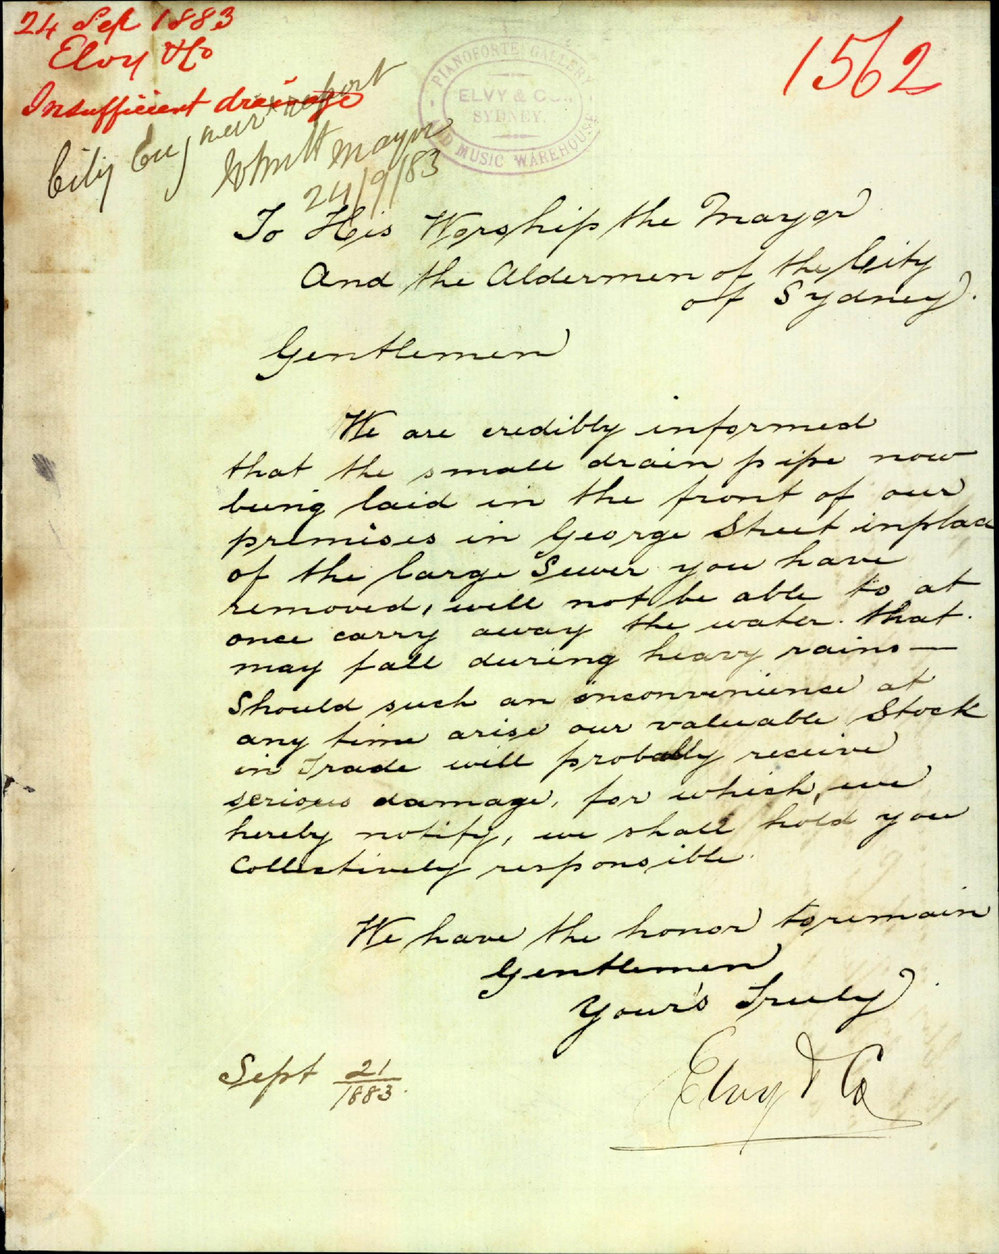 24 Sep 1883
Elvy & Co
Insufficient drainage
1562
PIANOFORTE GALLERY
ELVY & Co.,
SYDNEY.
AND MUSIC WAREHOUSE
City Engineer report
Mayor
24/9/83
To His Worship the Mayor
And the Aldermen of the City
of Sydney.
Gentlemen
We are credibly informed
that the small drain pipe now
being laid in the front of our
premises in George Street inplace
of the large Sewer you have
removed, will not be able to at
once carry away the water. that.
may fall during heavy rains—
Should such an inconvenience at
any time arise our valuable Stock
in Trade will probably receive
serious damage, for which, we
hereby notify, we shall hold you
Collectively responsible.
We have the honor to remain
Gentlemen
Your's Truly
Elvy & Co
Sept 21/1883.